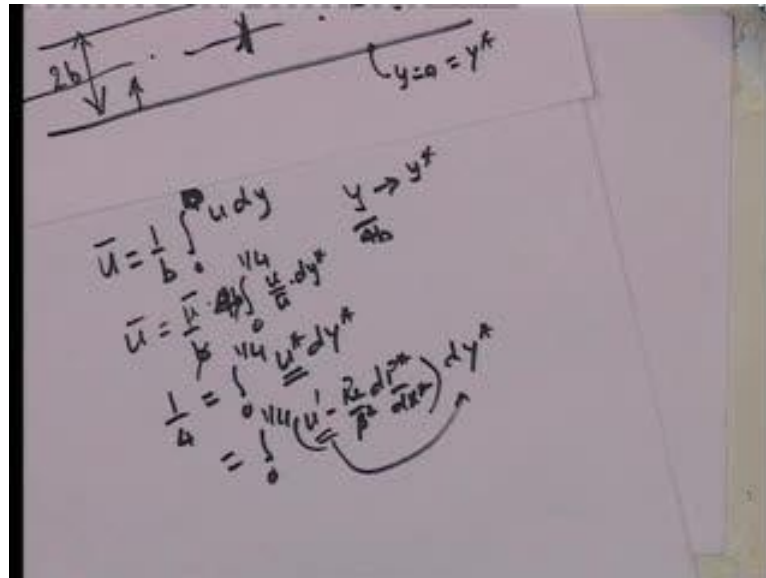 2b
y=0 = y*
ū = 1/b ∫₀ᵇ u dy    y/4b → y*
ū = ū/b · 4b ∫₀^1/4 u/ū · dy*
1/4 = ∫₀^1/4 u* dy*
= ∫₀^1/4 (u' - Re/β² dP*/dx*) dy*